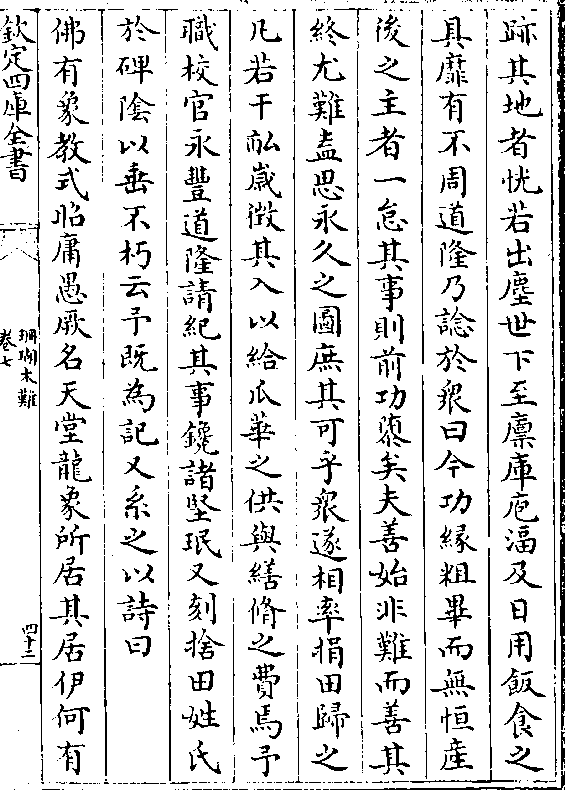 跡其地者恍若出塵世下至廩庫庖湢及日用飯食之
具靡有不周道隆乃諗於衆曰今功緣粗畢而無恒産
後之主者一怠其事則前功隳矣夫善始非難而善其
終尤難盍思永久之圖庶其可乎衆遂相率捐田歸之
凡若干畝歲徵其入以給瓜華之供與繕脩之費焉予
職校官永豐道隆請紀其事鑱諸堅珉又刻捨田姓氏
於碑陰以垂不朽云予既為記又系之以詩曰
佛有象教式昭庸愚厥名天堂龍象所居其居伊何有
欽定四庫全書
珊瑚木難
卷七
四十二